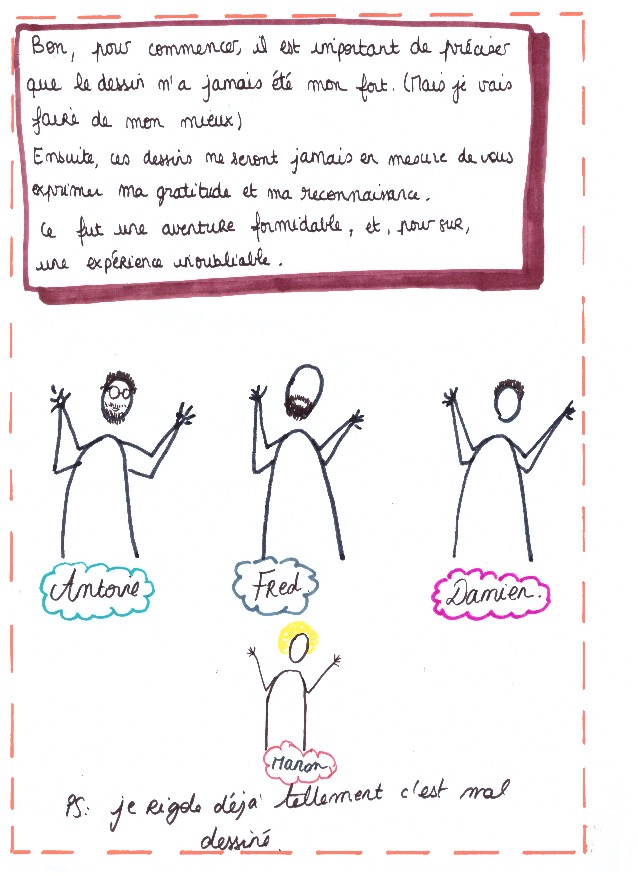 Bon, pour commencer, il est important de préciser
que le dessin n'a jamais été mon fort. (Mais je vais
faire de mon mieux)
Ensuite, ces dessins ne seront jamais en mesure de vous
exprimer ma gratitude et ma reconnaissance.
Ce fut une aventure formidable, et, pour sur,
une expérience inoubliable.
Antoine
Fred
Damien.
Manon
PS: je rigole déjà tellement c'est mal
dessiné